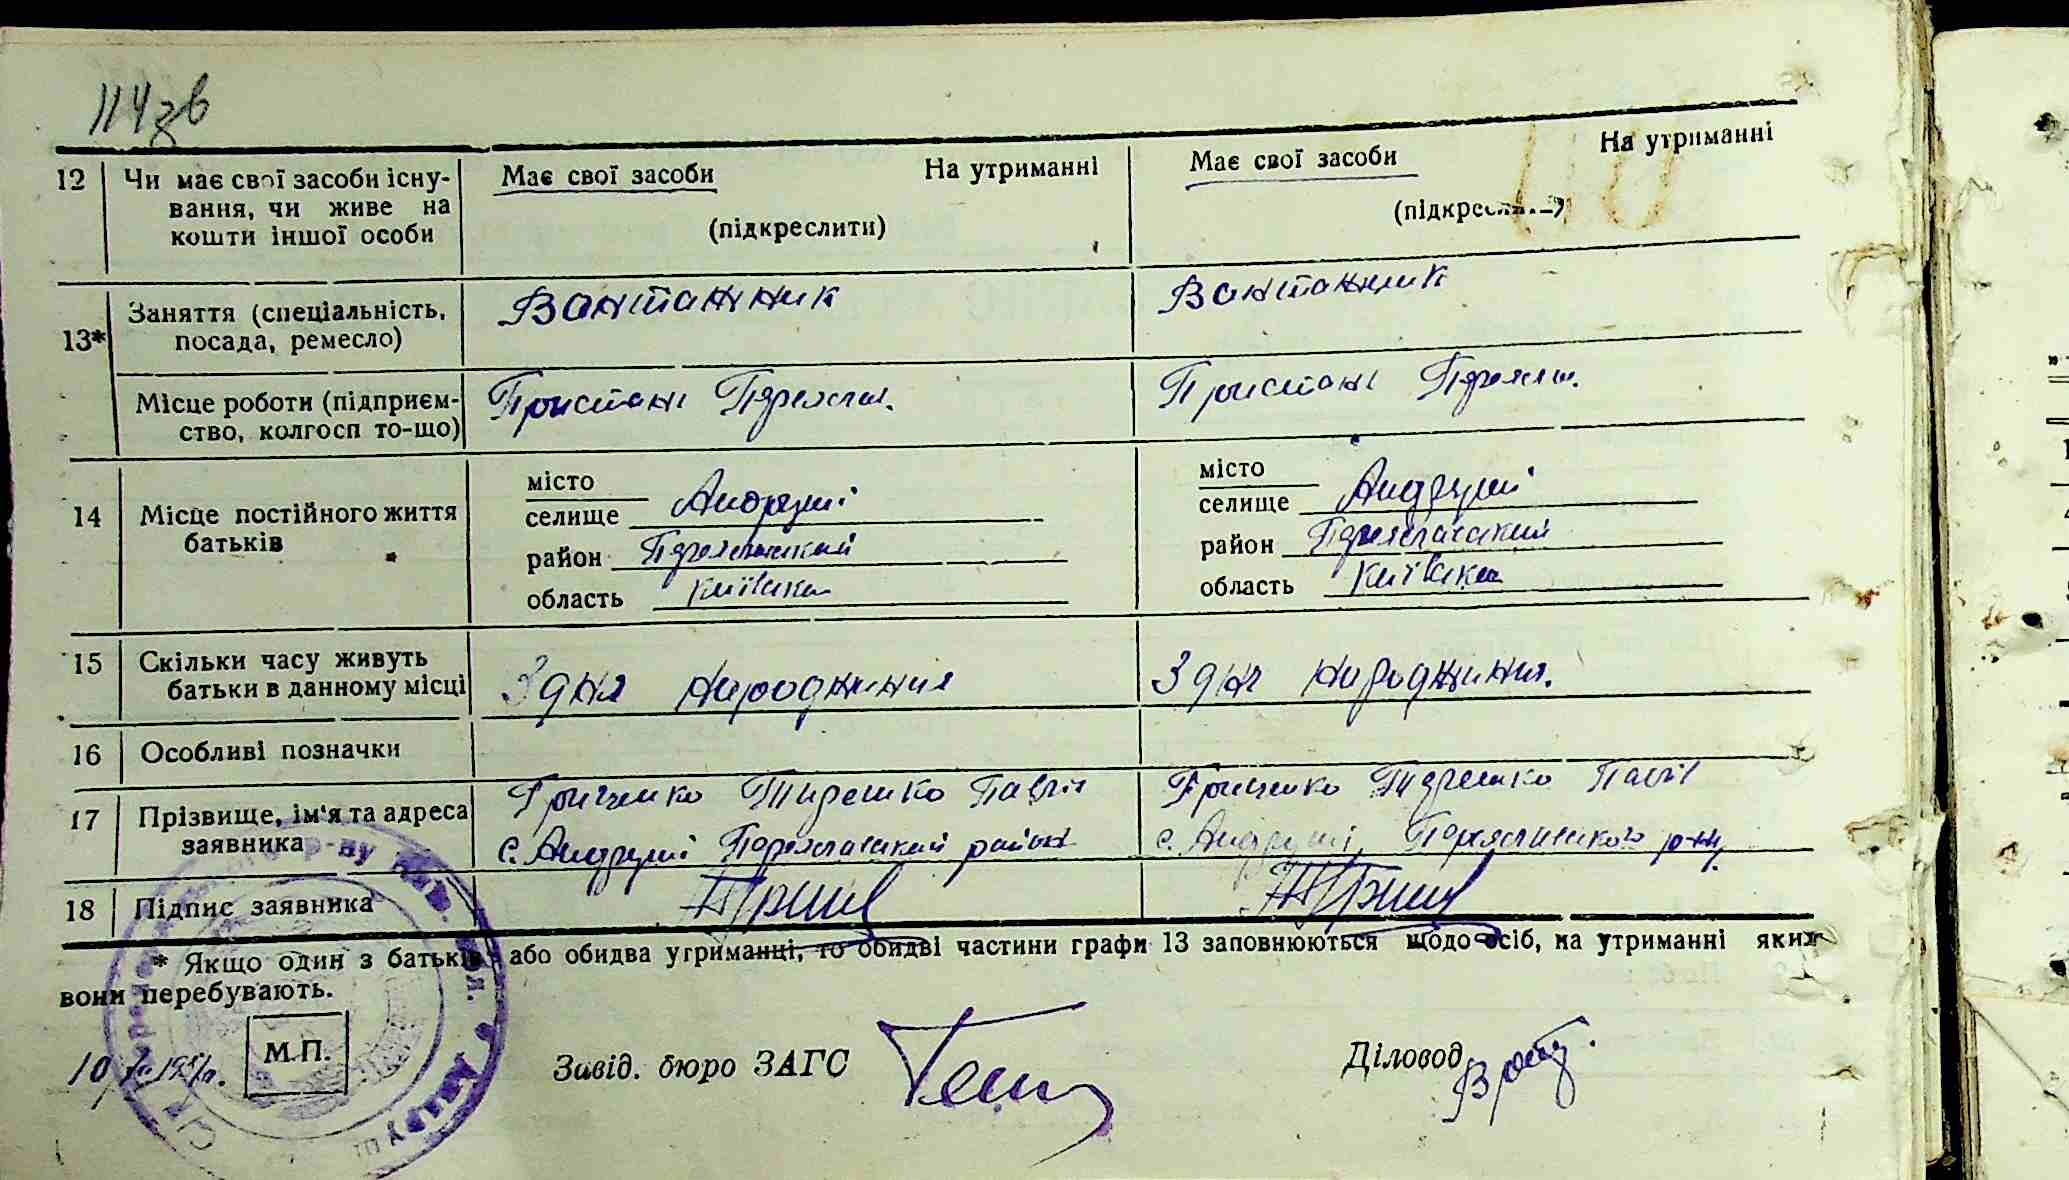 114зв
12 Чи має свої засоби існу- Має свої засоби На утриманні Має свої засоби На утриманні
вання, чи живе на
кошти іншої особи (підкреслити) (підкреслити)
13* Заняття (спеціальність, Вантажник Вантажник
посада, ремесло)
Місце роботи (підприєм- Пристані Пристані
ство, колгосп то-що)
14 Місце постійного життя місто місто
батьків селище Андруші селище Андруші
район район
область Київська область Київська
15 Скільки часу живуть З дня народження З дня народження.
батьки в данному місці
16 Особливі позначки
17 Прізвище, ім'я та адреса Гриценко Гриценко
заявника с. Андруші с. Андруші р-ну
18 Підпис заявника
* Якщо один з батьків або обидва утриманці, то обидві частини графи 13 заповнюються щодо осіб, на утриманні яких
вони перебувають.
М.П. Завід. бюро ЗАГС Діловод